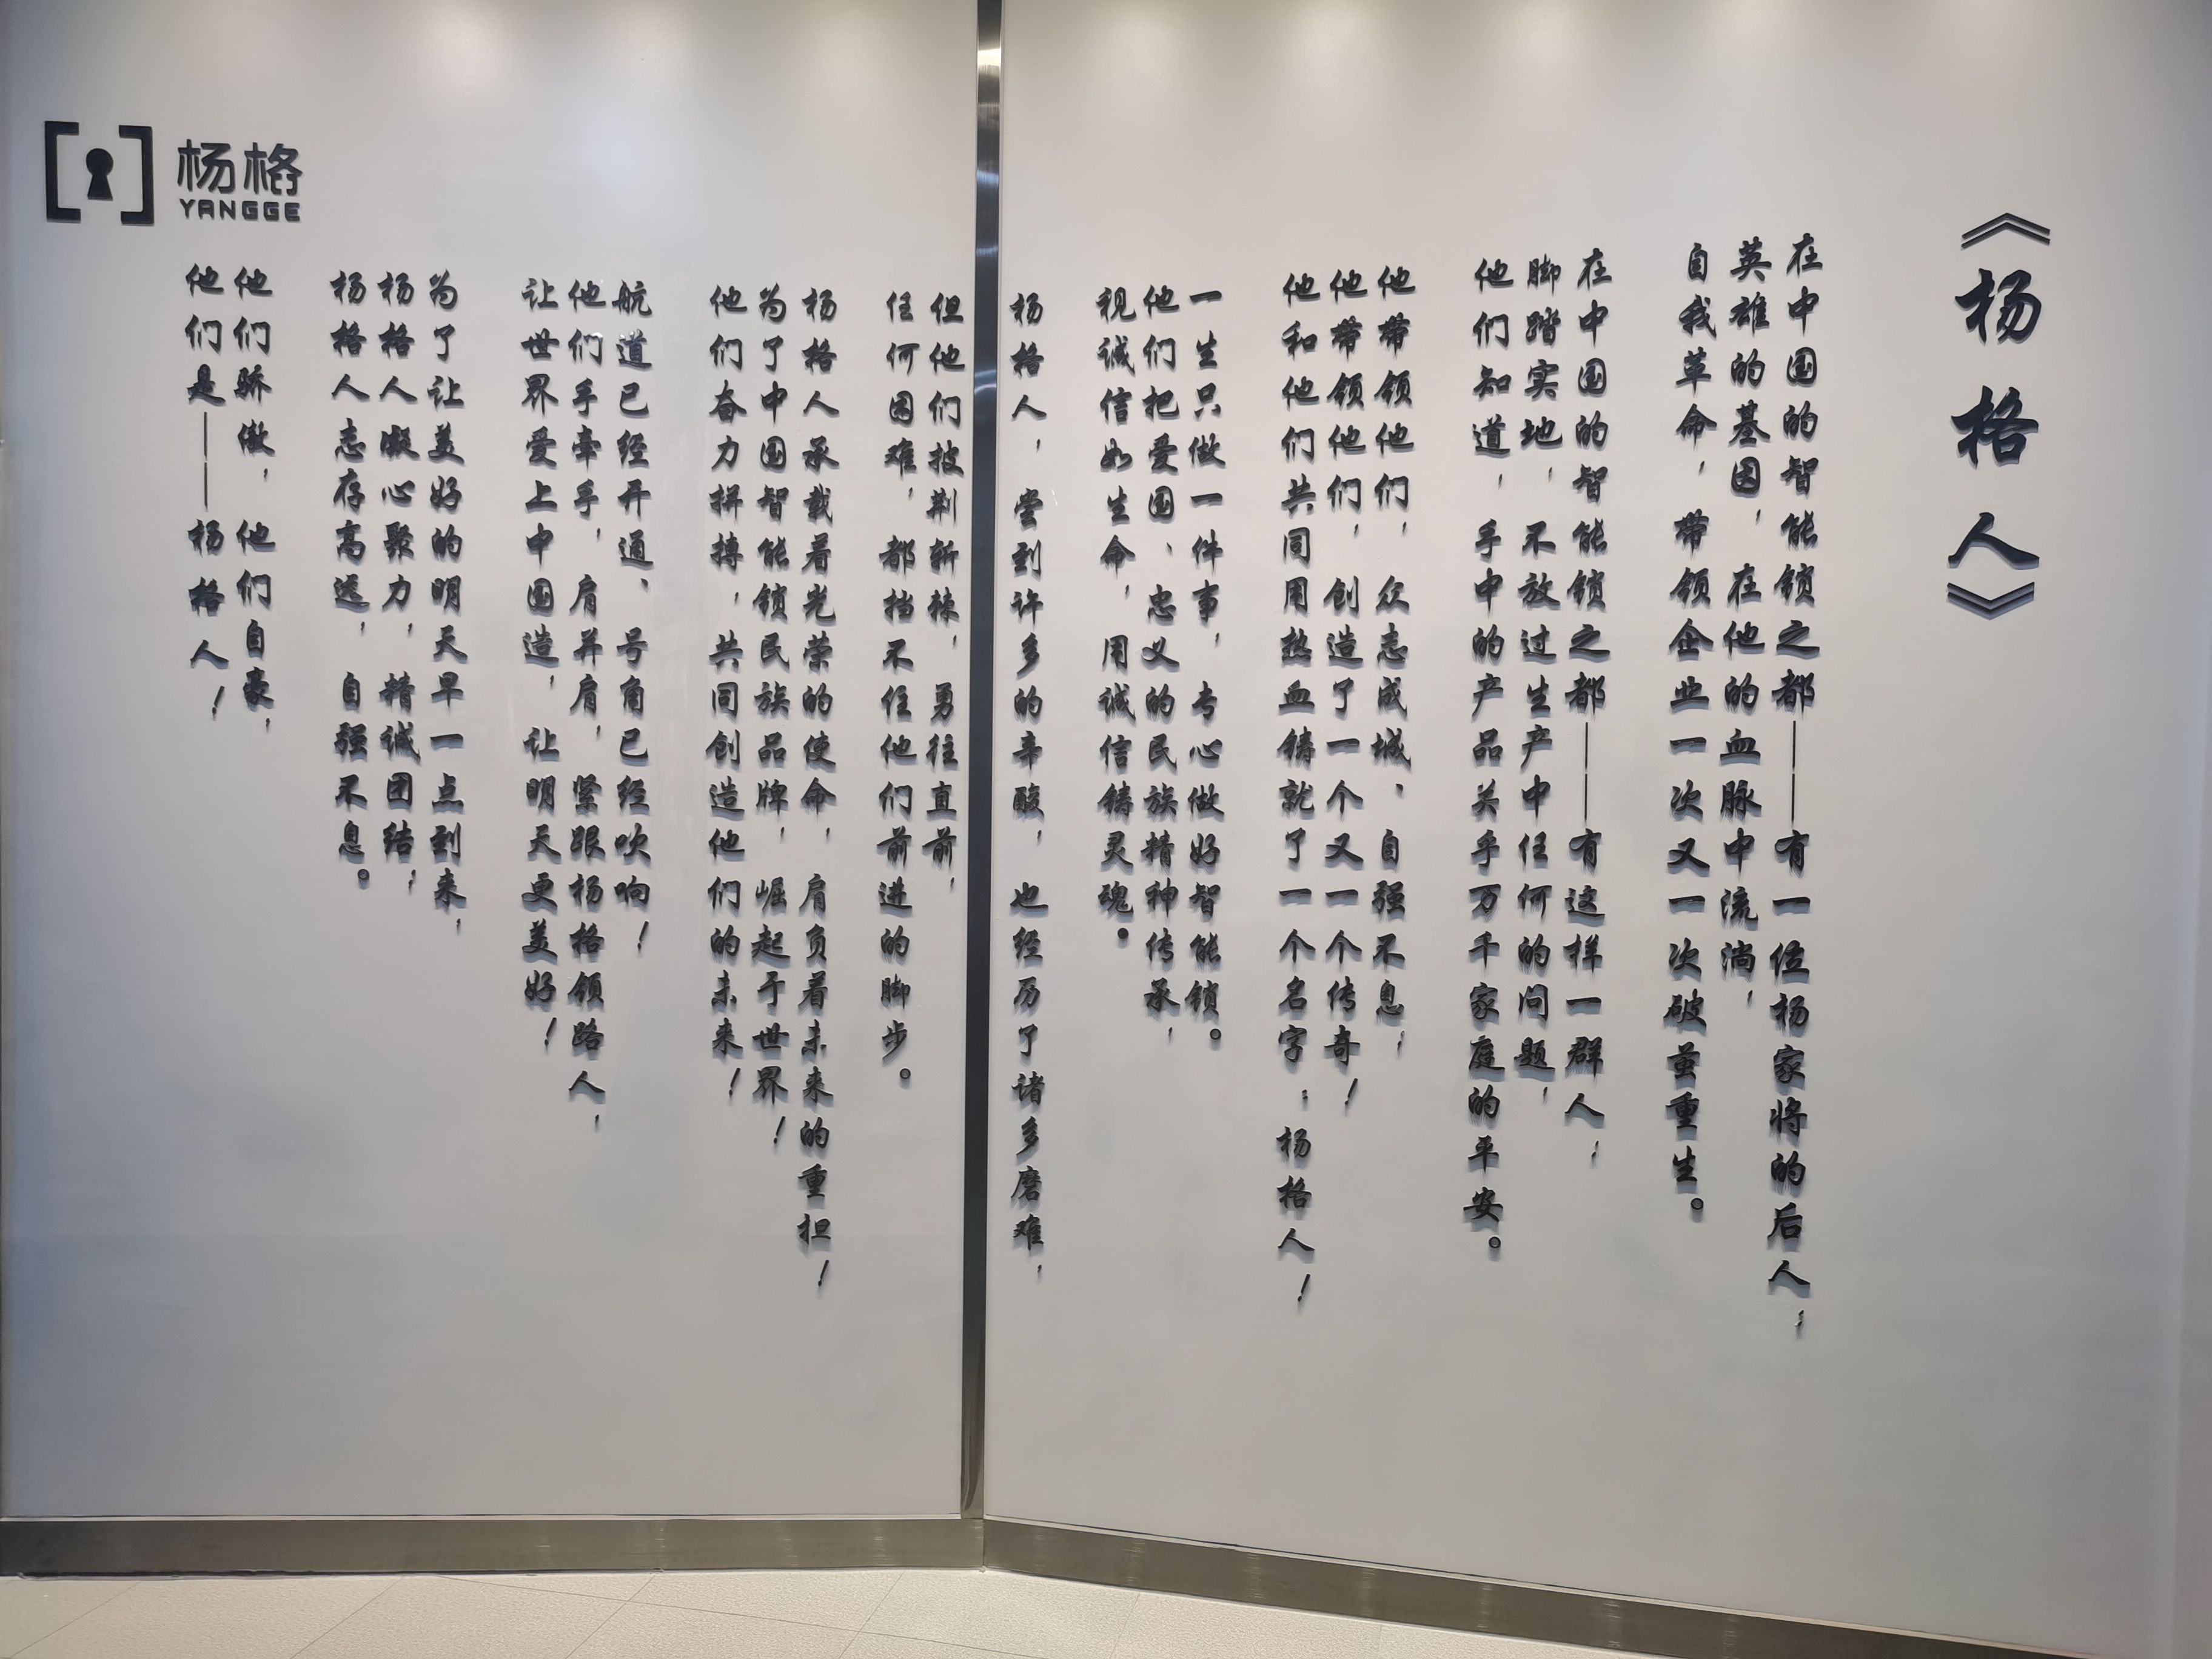 《杨格人》
在中国的智能锁之都——有一位杨家将的后人；
英雄的基因，在他的血脉中流淌，
自我革命，带领企业一次又一次破茧重生。
在中国的智能锁之都——有这样一群人；
脚踏实地，不放过生产中任何的问题，
他们知道，手中的产品关乎万千家庭的平安。
他带领他们，众志成城、自强不息；
他带领他们，创造了一个又一个传奇！
他和他们共同用热血铸就了一个名字：杨格人！
一生只做一件事，专心做好智能锁。
他们把爱国、忠义的民族精神传承，
视诚信如生命，用诚信铸灵魂。
杨格人，尝到许多的辛酸，也经历了诸多磨难，
但他们披荆斩棘，勇往直前，
任何困难，都挡不住他们前进的脚步。
杨格人承载着光荣的使命，肩负着未来的重担！
为了中国智能锁民族品牌，崛起于世界！
他们奋力拼搏，共同创造他们的未来！
航道已经开通、号角已经吹响！
他们手牵手，肩并肩，紧跟杨格领路人，
让世界爱上中国造，让明天更美好！
为了让美好的明天早一点到来，
杨格人凝心聚力，精诚团结；
杨格人志存高远，自强不息。
他们骄傲，他们自豪，
他们是——杨格人！
杨格
YANGGE